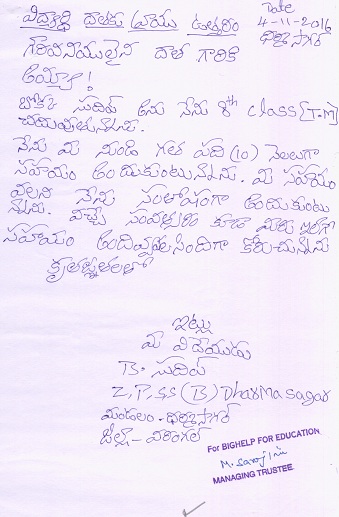 విద్యార్థి దాతకు వ్రాయు ఉత్తరం
Date
4-11-2016
ధర్మసాగర్
గౌరవనీయులైన దాత గారికి
అయ్యా!
బొక్క సుదీప్ అను నేను 8th class [T-M]
చదువుతున్నాను.
నేను మీ నుండి గత పది (10) నెలలుగా
సహాయం అందుకుంటున్నాను. మీ సహాయం
వలన నేను సంతోషంగా ఉంటు
న్నాను. వచ్చే సంవత్సరం కూడా మీరు ఇలాగే
సహాయం అందివ్వాల్సిందిగా కోరుచున్నాను
కృతజ్ఞతలతో
ఇట్లు
మీ విదేయుడు
B. సుదీప్
Z.P.SS (B) Dharmasagar
మండలం - ధర్మసాగర్
జిల్లా - వరంగల్
For BIGHELP FOR EDUCATION
M. Sarojini
MANAGING TRUSTEE